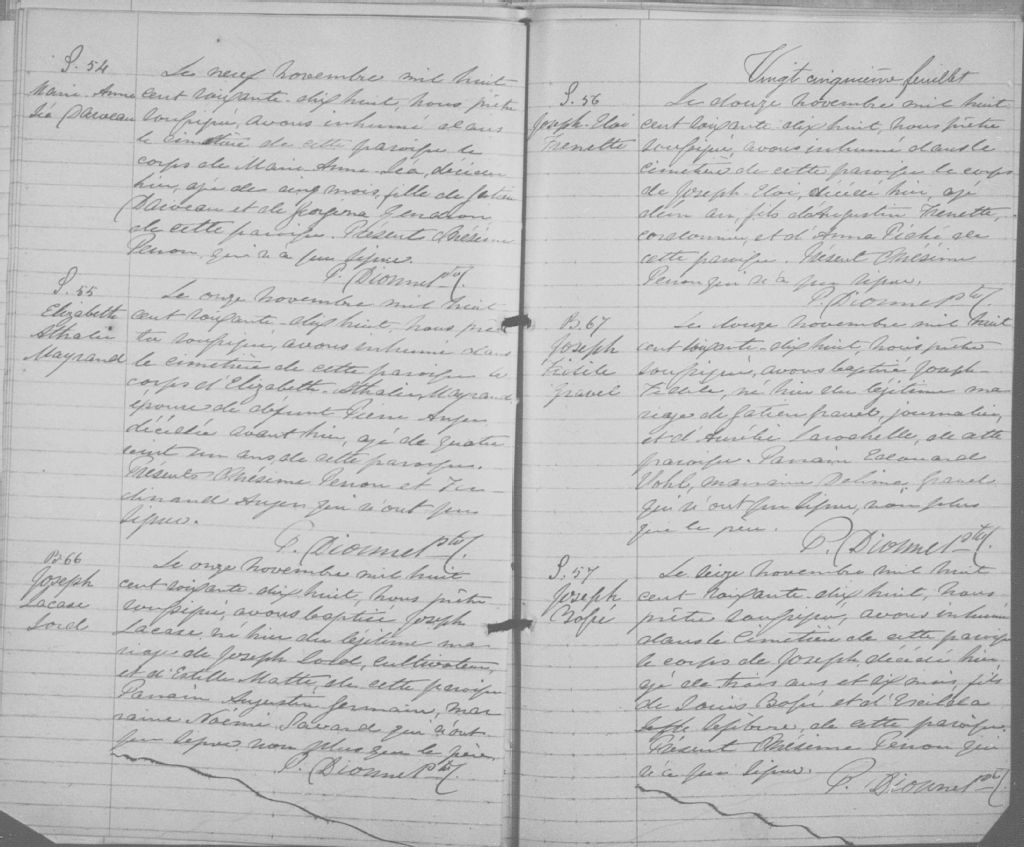 S. 54
Marie-Anne
Léa Darveau
Le neuf novembre mil huit
cent soixante-dix huit, nous prêtre
soussigné, avons inhumé dans
le cimetière de cette paroisse le
corps de Marie Anne Léa, décédée
hier, agé de cinq mois, fille de Gatien
Darveau et de Gendron
de cette paroisse. Présent Onésime
Perron, qui n'a pu signer.
P. Dionne Ptre.
S. 55
Elizabeth
Athalie
Mayrand
Le onze novembre mil huit
cent soixante-dix huit, nous prê-
tre soussigné, avons inhumé dans
le cimetière de cette paroisse le
corps d'Elizabeth Athalie Mayrand,
épouse de défunt Pierre Auger,
décédée avant hier, agé de quatre
vingt un ans, de cette paroisse.
Présents Onésime Perron et Fer-
dinand Auger, qui n'ont pu
signer.
P. Dionne Ptre.
B. 66
Joseph
Lacase
Lord
Le onze novembre mil huit
cent soixante-dix huit, nous prêtre
soussigné, avons baptisé Joseph
Lacase, né hier du légitime ma-
riage de Joseph Lord, cultivateur,
et d'Estelle Matte, de cette paroisse
Parrain Augustin Germain, mar-
raine Noémie Savard qui n'ont
pu signer non plus que le père.
P. Dionne Ptre.
Vingt cinquième feuillet
S. 56
Joseph-Eloi
Frenette
Le douze novembre mil huit
cent soixante-dix huit, nous prêtre
soussigné, avons inhumé dans le
cimetière de cette paroisse le corps
de Joseph-Eloi, décédé hier, agé
d'un an, fils d'Augustin Frenette,
cordonnier, et d'Anna Piché de
cette paroisse. Présent Onésime
Perron qui n'a pu signer.
P. Dionne Ptre.
B. 67
Joseph
Fidèle
Gravel
Le douze novembre mil huit
cent soixante-dix huit, nous prêtre
soussigné, avons baptisé Joseph-
Fidèle, né hier du légitime ma-
riage de Gatien Gravel, journalier,
et d'Aurélie Larochelle, de cette
paroisse. Parrain Edouard
Vohl, marraine Délima Gravel
qui n'ont pu signer, non plus
que le père.
P. Dionne Ptre.
S. 57
Joseph
Bofé
Le seize novembre mil huit
cent soixante dix huit, nous
prêtre soussigné, avons inhumé
dans le cimetière de cette paroisse
le corps de Joseph, décédé hier,
agé de trois ans et dix mois, fils
de Louis Bofé et d'Exilda
Lefebvre, de cette paroisse.
Présent Onésime Perron qui
n'a pu signer.
P. Dionne Ptre.